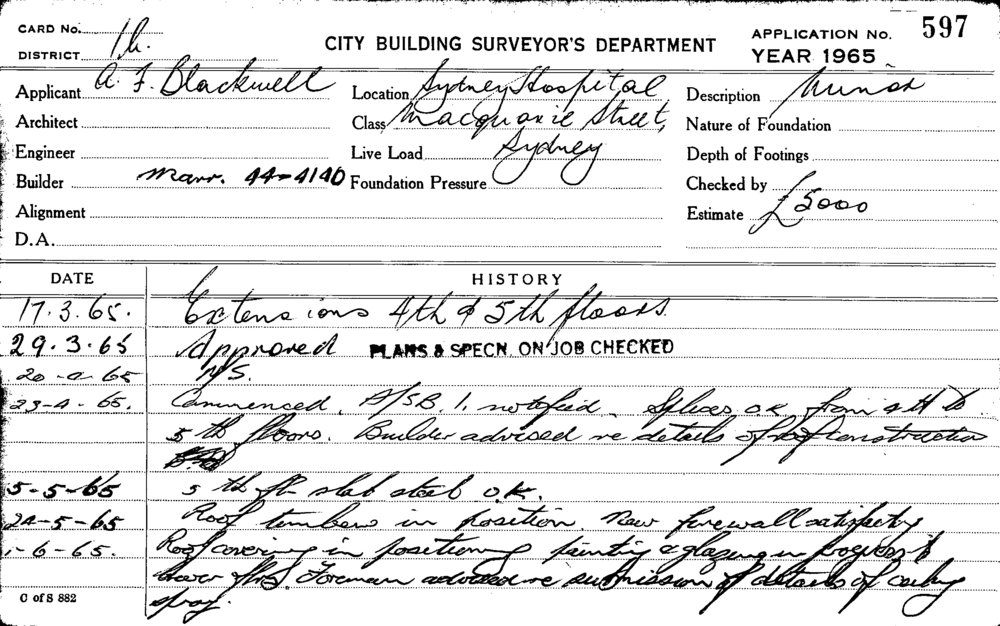 CARD No.
DISTRICT
CITY BUILDING SURVEYOR'S DEPARTMENT
APPLICATION No. 597
YEAR 1965
Applicant A. F. Blackwell
Location Sydney Hospital
Description Minor
Architect
Class Macquarie Street,
Nature of Foundation
Engineer
Live Load Sydney
Depth of Footings
Builder Marr. 44-4140
Foundation Pressure
Checked by
Alignment
Estimate £5000
D.A.
DATE HISTORY
17.3.65. Extensions 4th & 5th floors.
29.3.65 Approved PLANS & SPECN. ON JOB CHECKED
20-4-65 N/S.
23-4-65. Commenced. notified. Splices OK from 4th to
5th floors. Builder advised re details of roof construction
5-5-65 5th fl slab steel O.K.
24-5-65 Roof timbers in position. New firewall satisfactory
1-6-65. Roof covering in position painting & glazing in progress
Forman advised re submission of details of ceiling
spray.
C of S 882